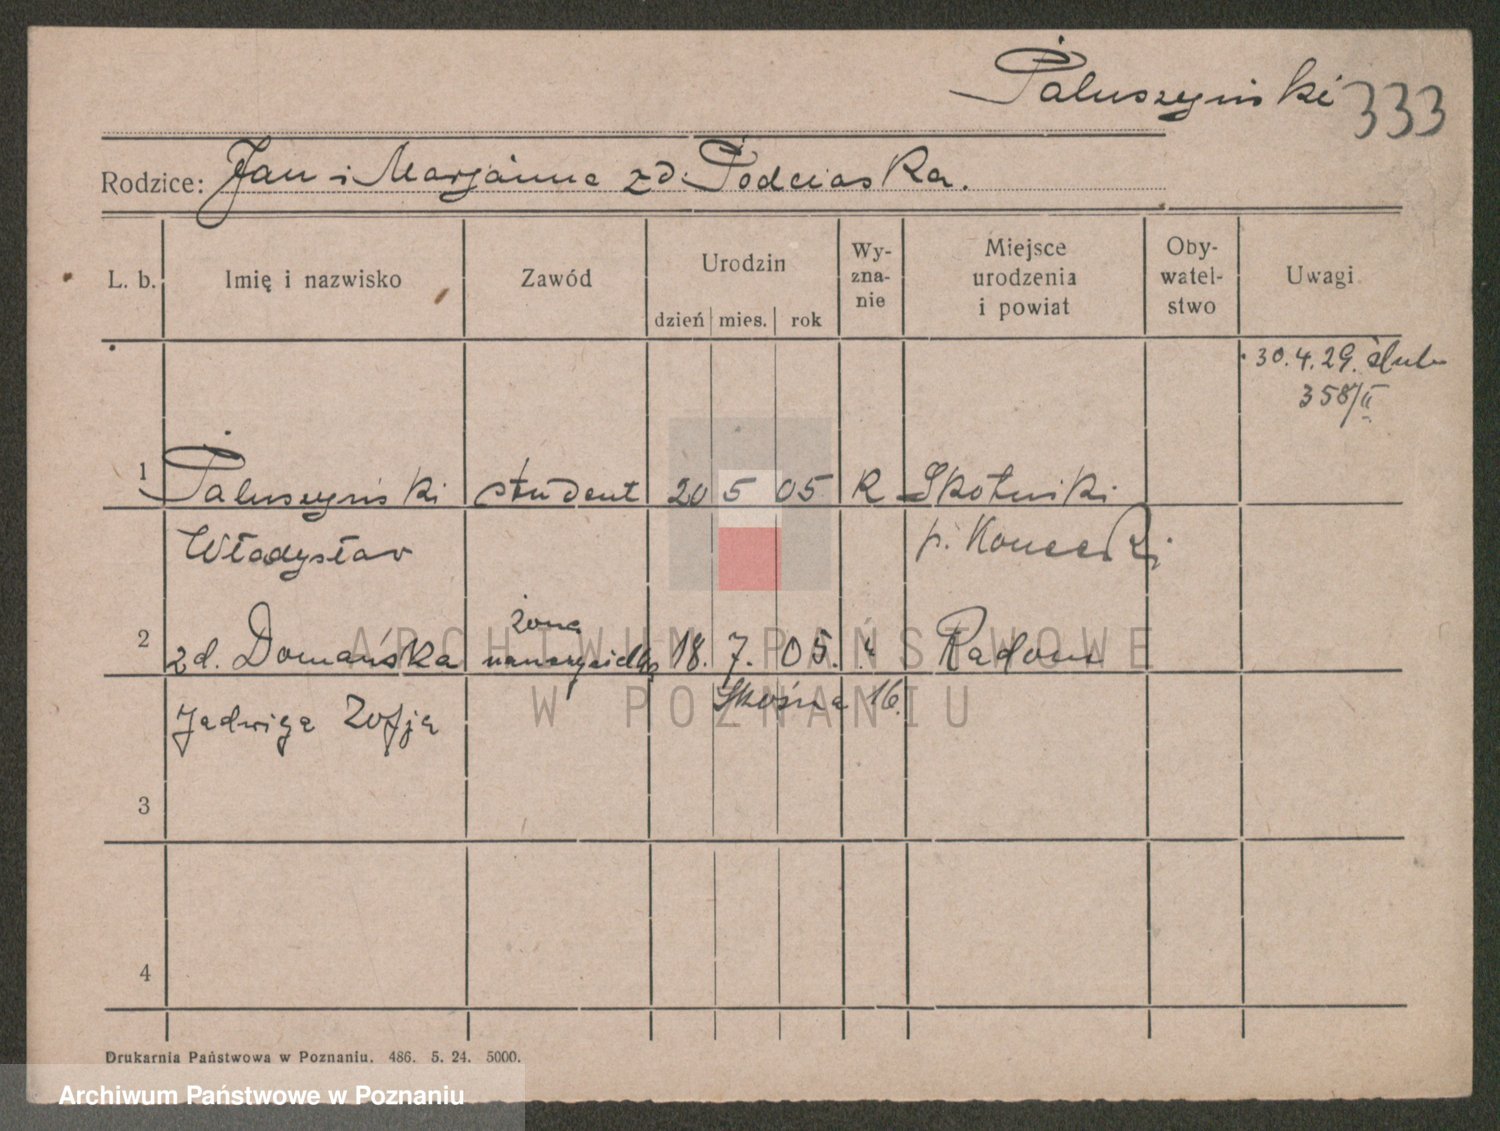 Paluszyński 333
Rodzice: Jan i Marjanna zd. Podciaska.
L. b. Imię i nazwisko Zawód Urodzin Wy-zna-nie Miejsce urodzenia i powiat Oby-watel-stwo Uwagi
dzień mies. rok
30.4.29. ślub
358/II
1 Paluszyński student 20 5 05 R Skotniki
Władysław p. Konecki
żona
2 zd. Domańska nauczycielka 18. 7. 05. " Radom
Skośna 16.
Jadwiga Zofja
3
4
Drukarnia Państwowa w Poznaniu. 486. 5. 24. 5000.
ARCHIWUM PAŃSTWOWE
W POZNANIU
Archiwum Państwowe w Poznaniu